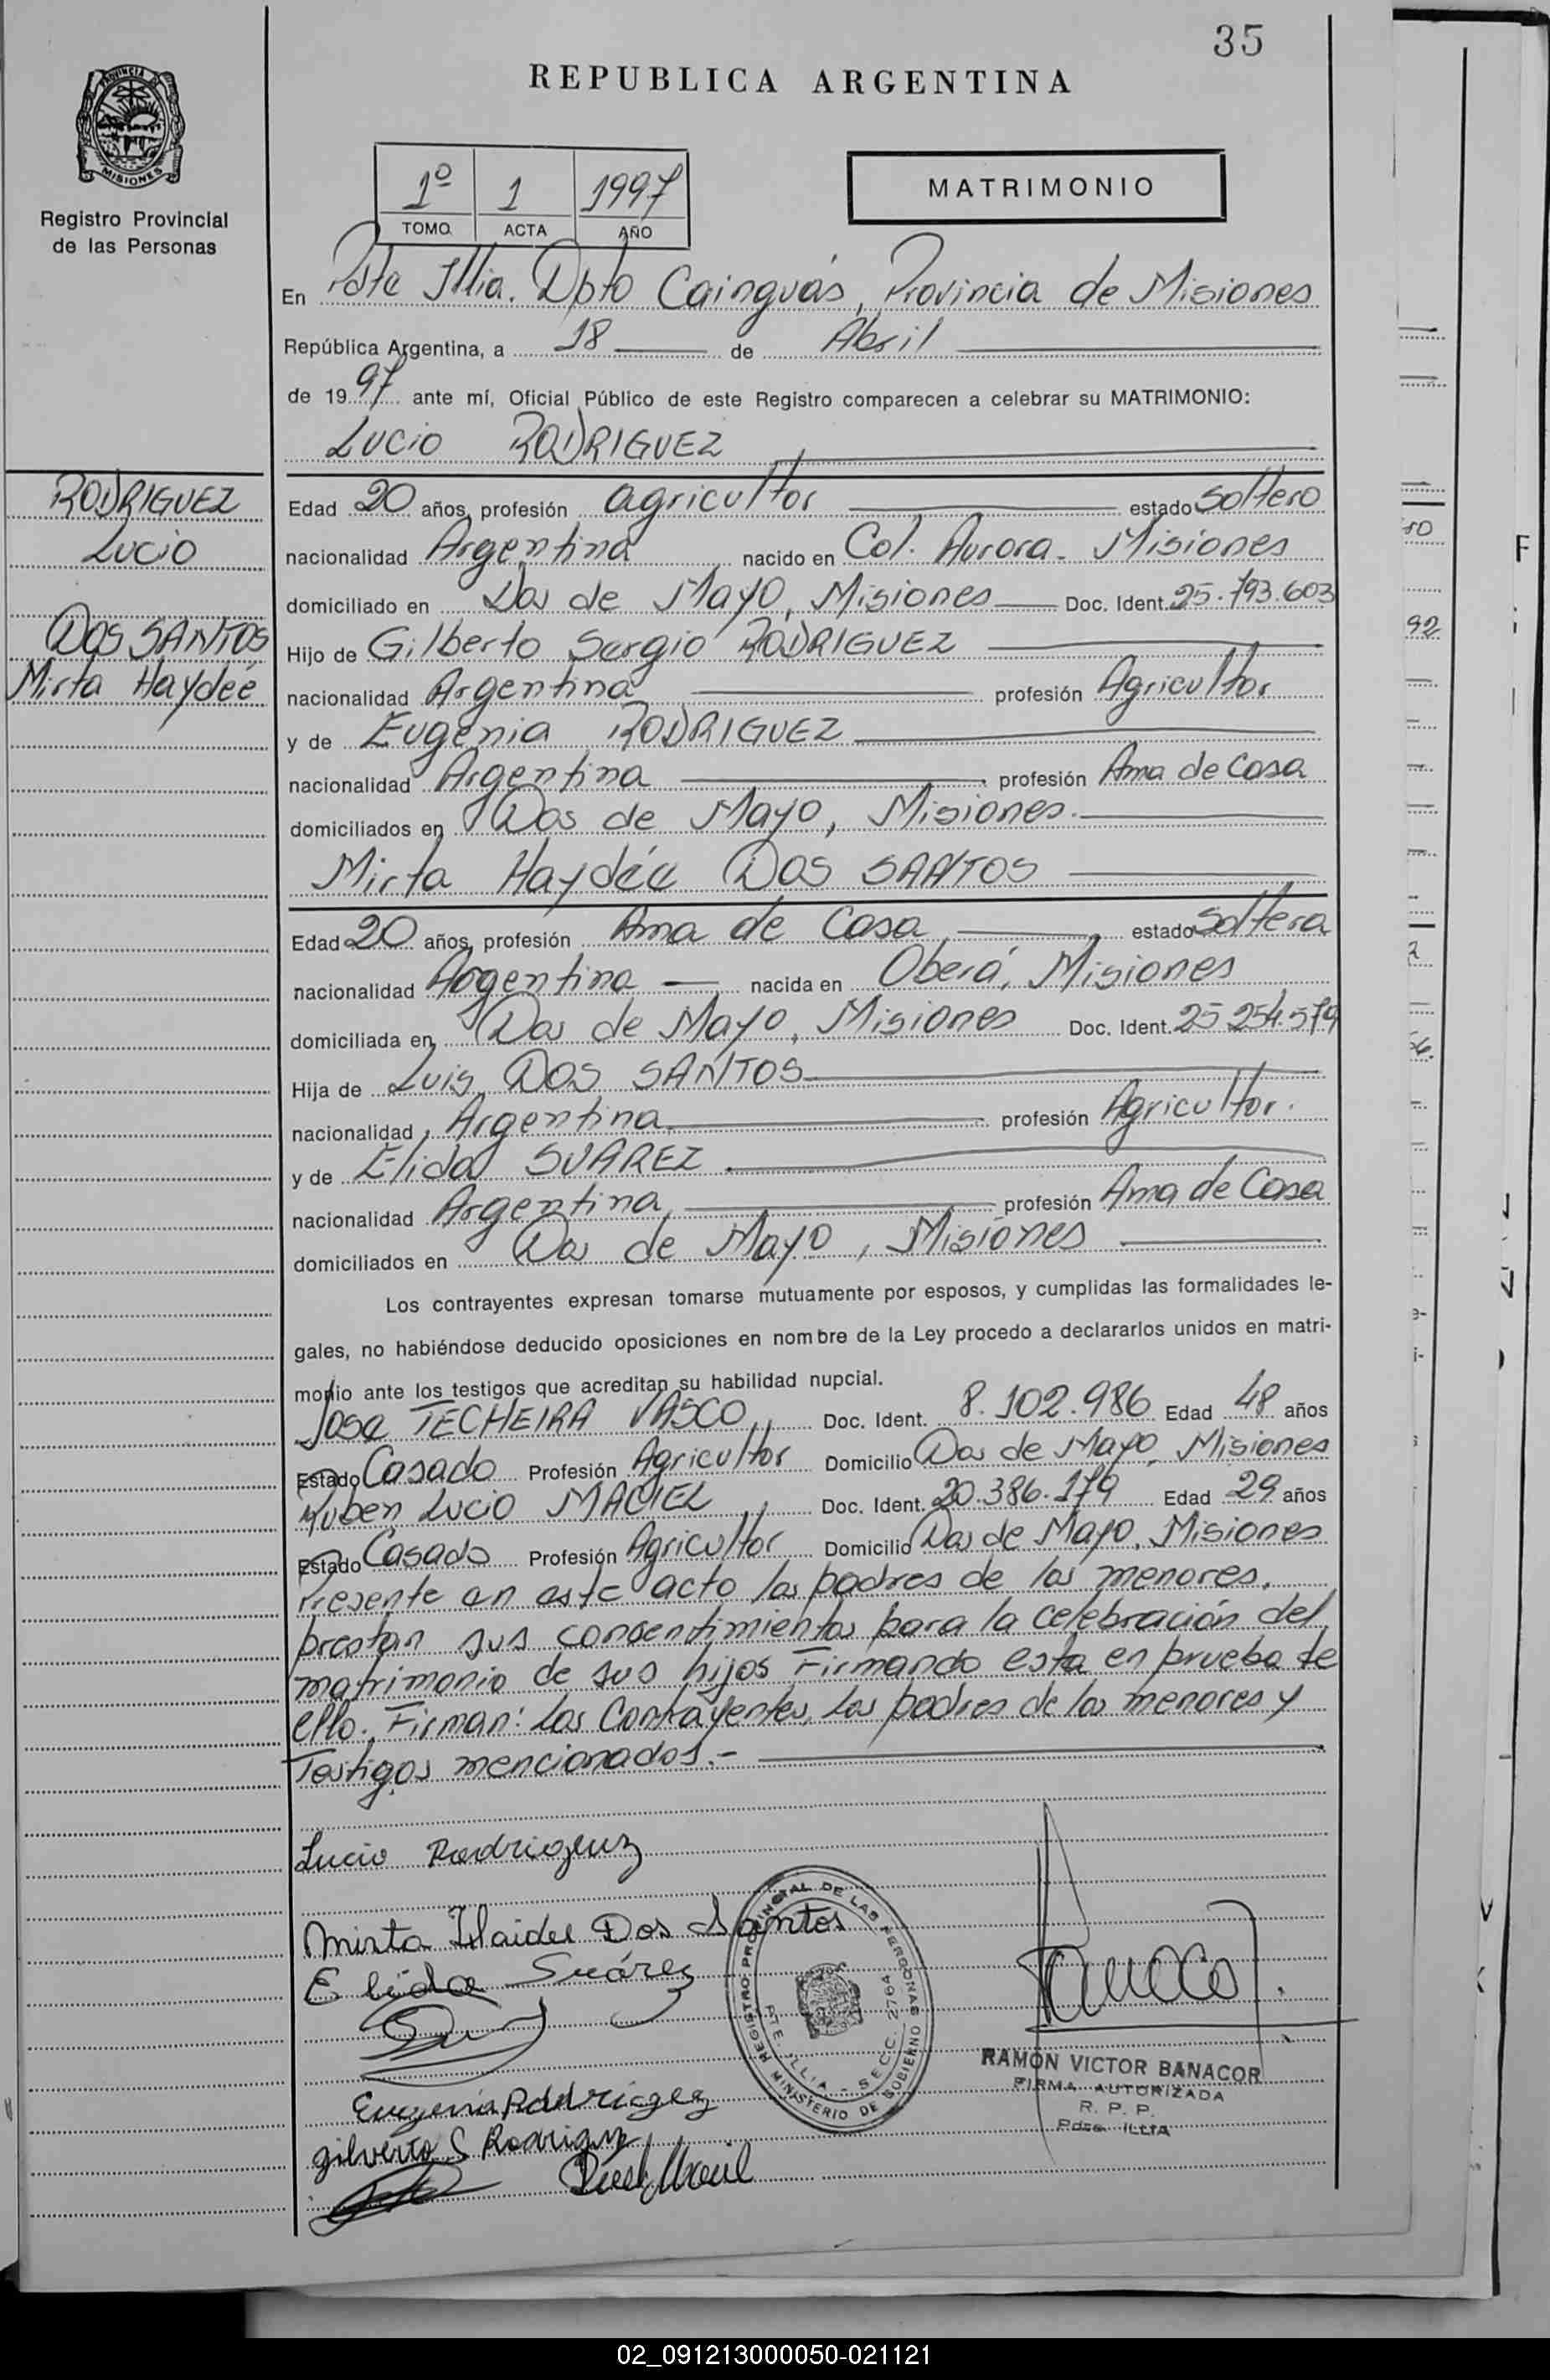 35
REPUBLICA ARGENTINA
PROVINCIA DE MISIONES
Registro Provincial
de las Personas
1º 1 1997
TOMO ACTA AÑO
MATRIMONIO
En Pdte Illia. Dpto Cainguás, Provincia de Misiones
República Argentina, a 18 de Abril
de 1997 ante mí, Oficial Público de este Registro comparecen a celebrar su MATRIMONIO:
Lucio RODRIGUEZ
RODRIGUEZ
Lucio
DOS SANTOS
Mirta Haydée
Edad 20 años, profesión agricultor estado soltero
nacionalidad Argentina nacido en Col. Aurora - Misiones
domiciliado en Dos de Mayo, Misiones Doc. Ident. 25.793.603
Hijo de Gilberto Sergio RODRIGUEZ
nacionalidad Argentina profesión Agricultor
y de Eugenia RODRIGUEZ
nacionalidad Argentina profesión Ama de Casa
domiciliados en Dos de Mayo, Misiones.
Mirta Haydée DOS SANTOS
Edad 20 años, profesión Ama de Casa estado soltera
nacionalidad Argentina nacida en Oberá, Misiones
domiciliada en Dos de Mayo, Misiones Doc. Ident. 25 254.579
Hija de Luis DOS SANTOS
nacionalidad Argentina profesión Agricultor.
y de Elida SUAREZ
nacionalidad Argentina profesión Ama de Casa
domiciliados en Dos de Mayo, Misiones
Los contrayentes expresan tomarse mutuamente por esposos, y cumplidas las formalidades le-
gales, no habiéndose deducido oposiciones en nombre de la Ley procedo a declararlos unidos en matri-
monio ante los testigos que acreditan su habilidad nupcial.
Jose TECHEIRA VASCO, Doc. Ident. 8.102.986 Edad 48 años
Estado Casado Profesión Agricultor Domicilio Dos de Mayo, Misiones
Ruben Lucio MACIEL, Doc. Ident. 20.386.179 Edad 29 años
Estado Casado Profesión Agricultor Domicilio Dos de Mayo, Misiones
Presente en este acto los padres de los menores,
prestan sus consentimientos para la celebración del
matrimonio de sus hijos Firmando esta en prueba de
ello. Firman: Los Contrayentes, los padres de los menores y
Testigos mencionados.-
Lucio Rodriguez
Mirta Haidee Dos Santos
Elida Suárez
Eugenia Rodriguez
Gilverto S Rodriguez
REGISTRO PROVINCIAL DE LAS PERSONAS
MINISTERIO DE GOBIERNO
PTE. ILLIA - SECC. 2764
RAMON VICTOR BANACOR
FIRMA AUTORIZADA
R. P. P.
Pdte. ILLIA
02_091213000050-021121